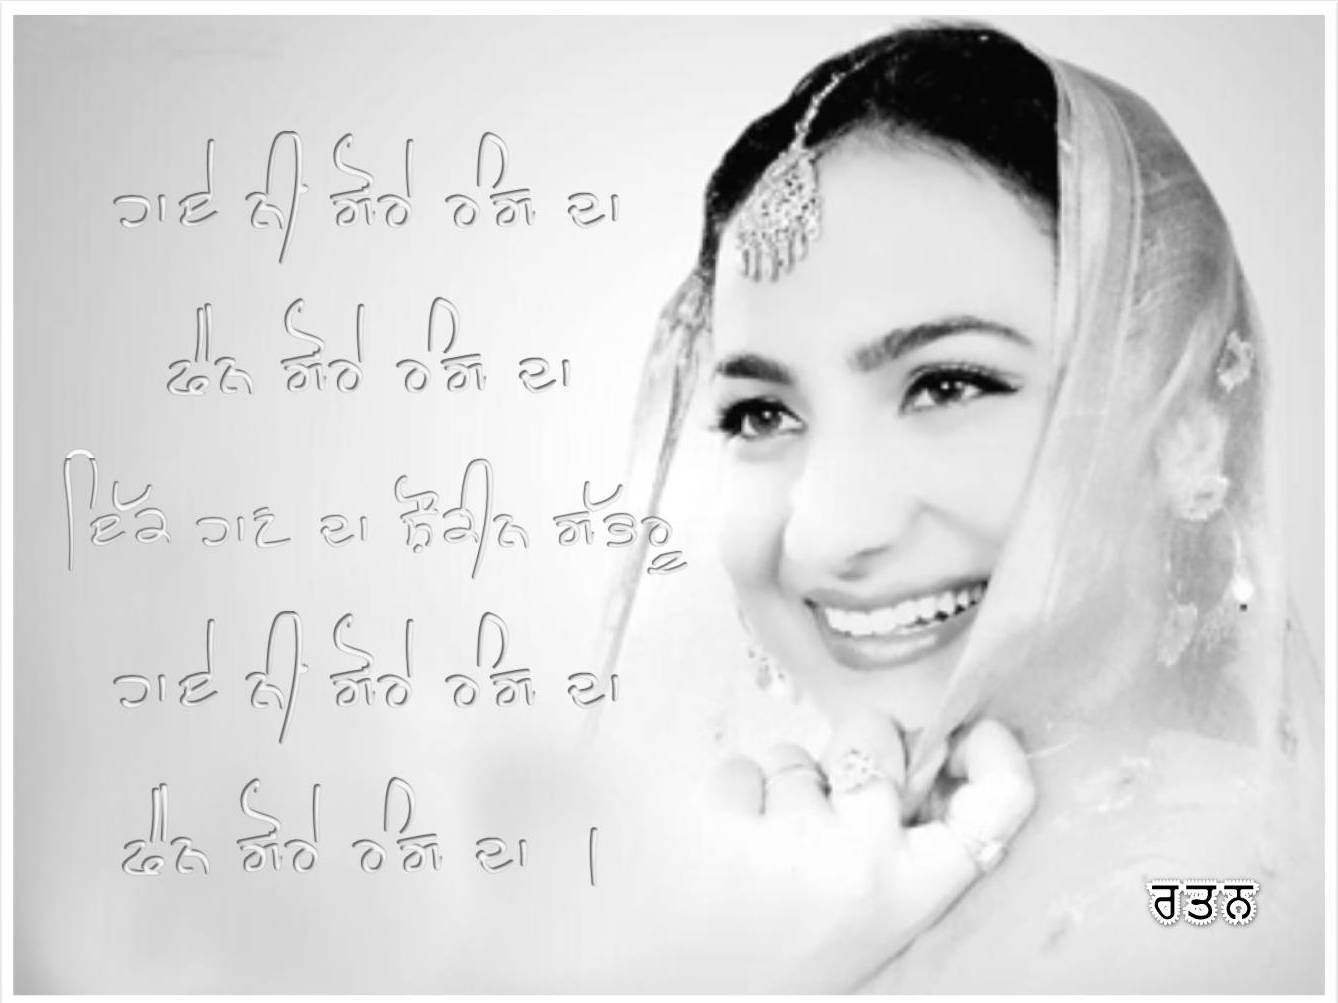 ਹਾਏ ਨੀ ਗੋਰੇ ਰੰਗ ਦਾ
ਫੈਨ ਗੋਰੇ ਰੰਗ ਦਾ
ਇੱਕ ਹਾਣ ਦਾ ਸ਼ੌਕੀਨ ਗੱਭਰੂ
ਹਾਏ ਨੀ ਗੋਰੇ ਰੰਗ ਦਾ
ਫੈਨ ਗੋਰੇ ਰੰਗ ਦਾ ।
ਰਤਨ